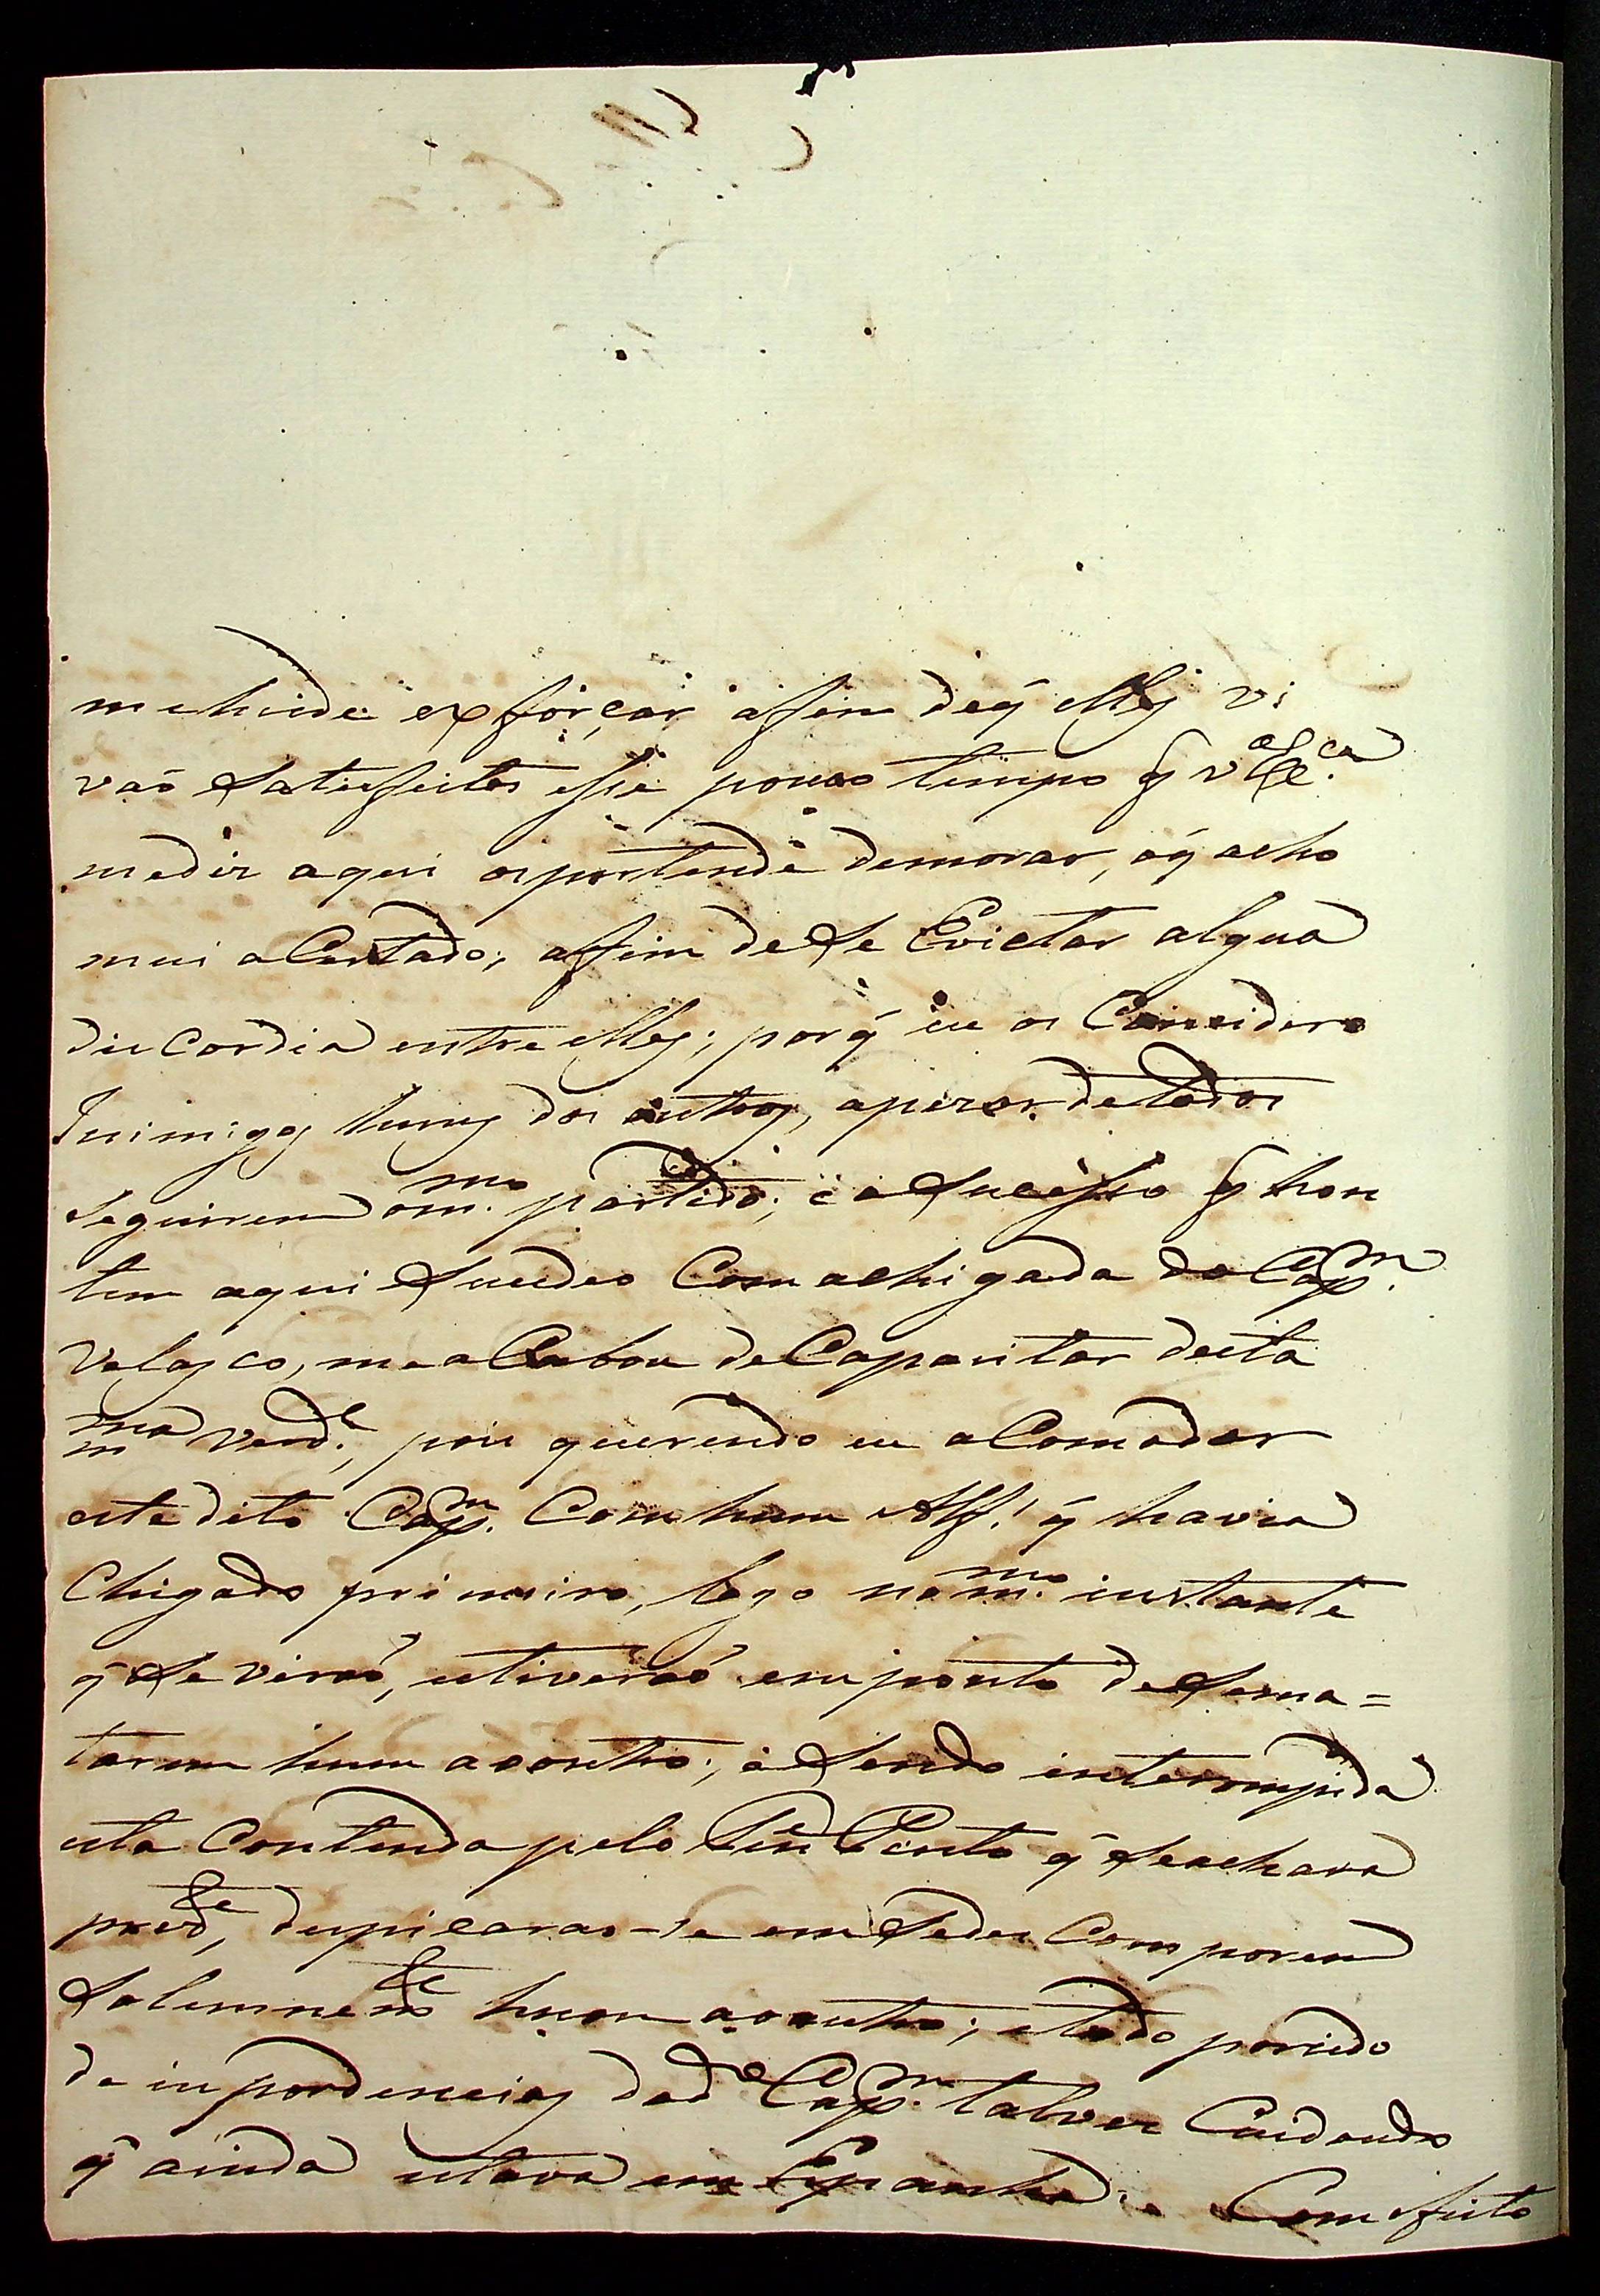 me heide exforçar afim deq̃ elles vi
vaõ Satesfeitos esse pouco tempo q̃ VEx.ca
medis aqui os pertende demorar, oq̃ acho
mui aCertado; afim deSe Evictar algua
disCordia entre elles; porq̃ eu os Considero
Inimigos huns dos outros, apezar detodos
Seguirem om.mo partido; e oSucesso q̃ hon
tem aqui Sucedeo Com achigada do Capm.
Velasco, me aCabou deCapacitar desta
mma verd.e, pois querendo eu aComodar
este dito Capm. Com hum Alf.s q̃ havia
Chigado primeiro, logo nom.mo instante
q̃ Se viraõ, estiveraõ em ponto deSema=
tarem hum aooutro; e Sendo interrompida
esta Contenda pelo Ten Pinto q̃ Seachava
prezte, despicarao-se em Sedes Comporem
Solemnemte hum aooutro; etudo porsido
de inprodencias dod.o Capm. talves Cuidando
q̃ ainda estava em Espanha; e Com efeito